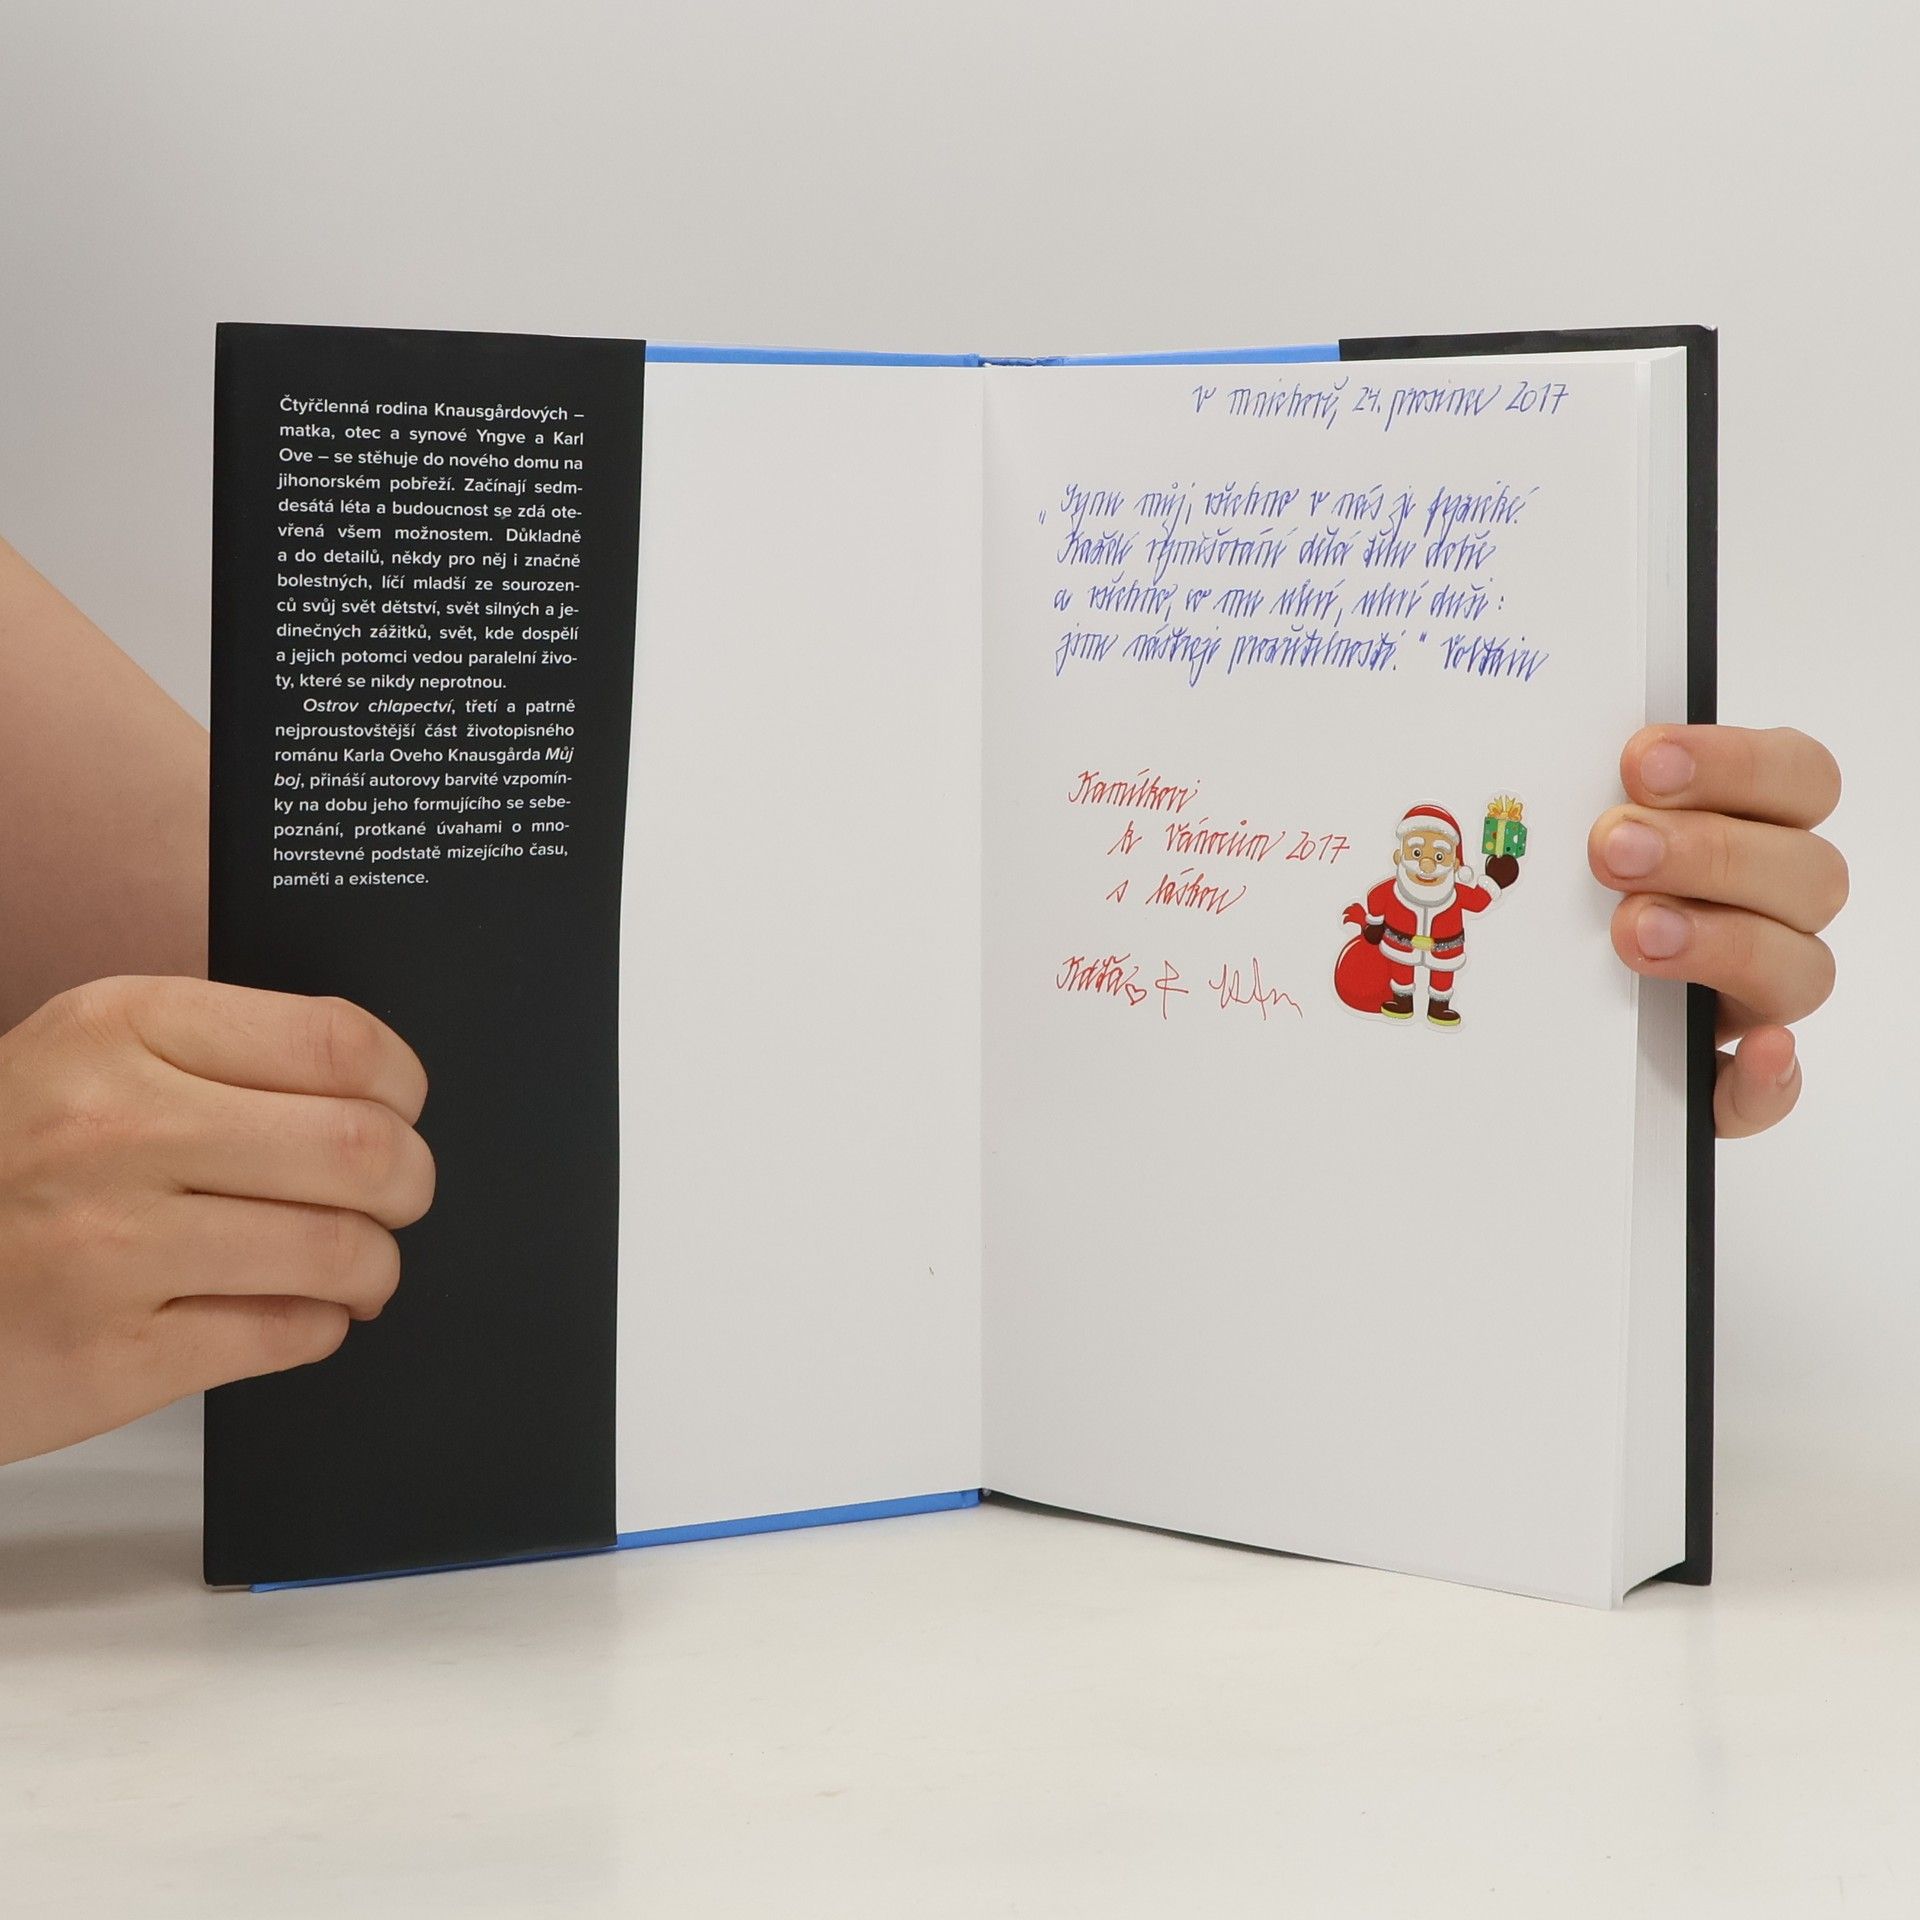 Čtyřčlenná rodina Knausgårdových –
matka, otec a synové Yngve a Karl
Ove – se stěhuje do nového domu na
jihonorském pobřeží. Začínají sedm-
desátá léta a budoucnost se zdá ote-
vřená všem možnostem. Důkladně
a do detailů, někdy pro něj i značně
bolestných, líčí mladší ze sourozen-
ců svůj svět dětství, svět silných a je-
dinečných zážitků, svět, kde dospělí
a jejich potomci vedou paralelní živo-
ty, které se nikdy neprotnou.
Ostrov chlapectví, třetí a patrně
nejproustovštější část životopisného
románu Karla Oveho Knausgårda Můj
boj, přináší autorovy barvité vzpomín-
ky na dobu jeho formujícího se sebe-
poznání, protkané úvahami o mno-
hovrstevné podstatě mizejícího času,
paměti a existence.
V Mnichově, 24. prosince 2017
„Synu můj, všechno v nás je fyzické.
Každé vyměšování dělá tělu dobře
a všechno, co mu uleví, uleví duši:
jsme nástroje prozřetelnosti." Voltaire
Kamílkovi
k Vánocům 2017
s láskou
Káťa